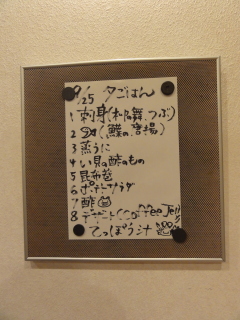 9/25 夕ごはん
1 刺身(松舞、つぶ)
2 (鰈の唐揚)
3 蒸うに
4 い貝の酢のもの
5 昆布巻
6 ポテトサラダ
7 酢
8 デザート(Coffee Jelly)
てっぽう汁